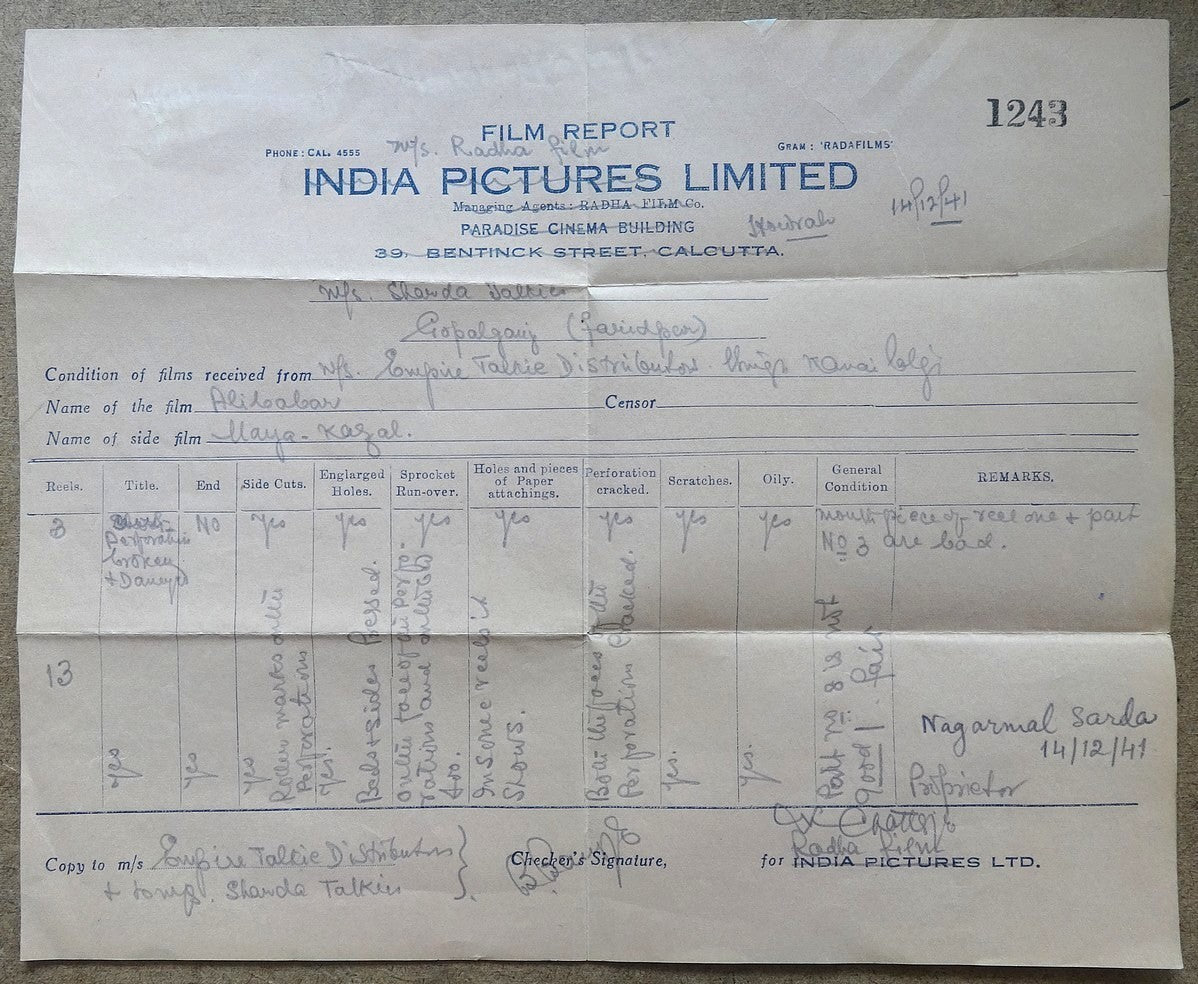 1243
FILM REPORT
PHONE: CAL. 4555 M/s. Radha film GRAM: 'RADAFILMS'
INDIA PICTURES LIMITED
Managing Agents: RADHA FILM Co.
14/12/41
PARADISE CINEMA BUILDING Howrah
39, BENTINCK STREET, CALCUTTA.
M/s. Sharda Talkies
Gopalganj (Faridpur)
Condition of films received from M/s. Empire Talkie Distributors
Name of the film Alibabar Censor
Name of side film Maya-Kazal.
Reels. Title. End Side Cuts. Englarged Holes. Sprocket Run-over. Holes and pieces of Paper attachings. Perforation cracked. Scratches. Oily. General Condition REMARKS.
3 Perforation broken NO Yes Yes Yes Yes Yes Yes Yes mouth piece of reel one + part
No 3 are bad.
13 Yes Yes Yes
Roller marks on the Perforations
Yes.
Beds + Sides Pressed.
On the face of the Perforations and
too.
In Some reels it
Shows.
Both the faces of the
Perforation Cracked.
Yes.
Yes.
Part No. 8 is not
good. fair
Nagarmal Sarda
14/12/41
Proprietor
Copy to m/s Empire Talkie Distributors Checker's Signature, for INDIA PICTURES LTD.
Radha Film
Sharda Talkies